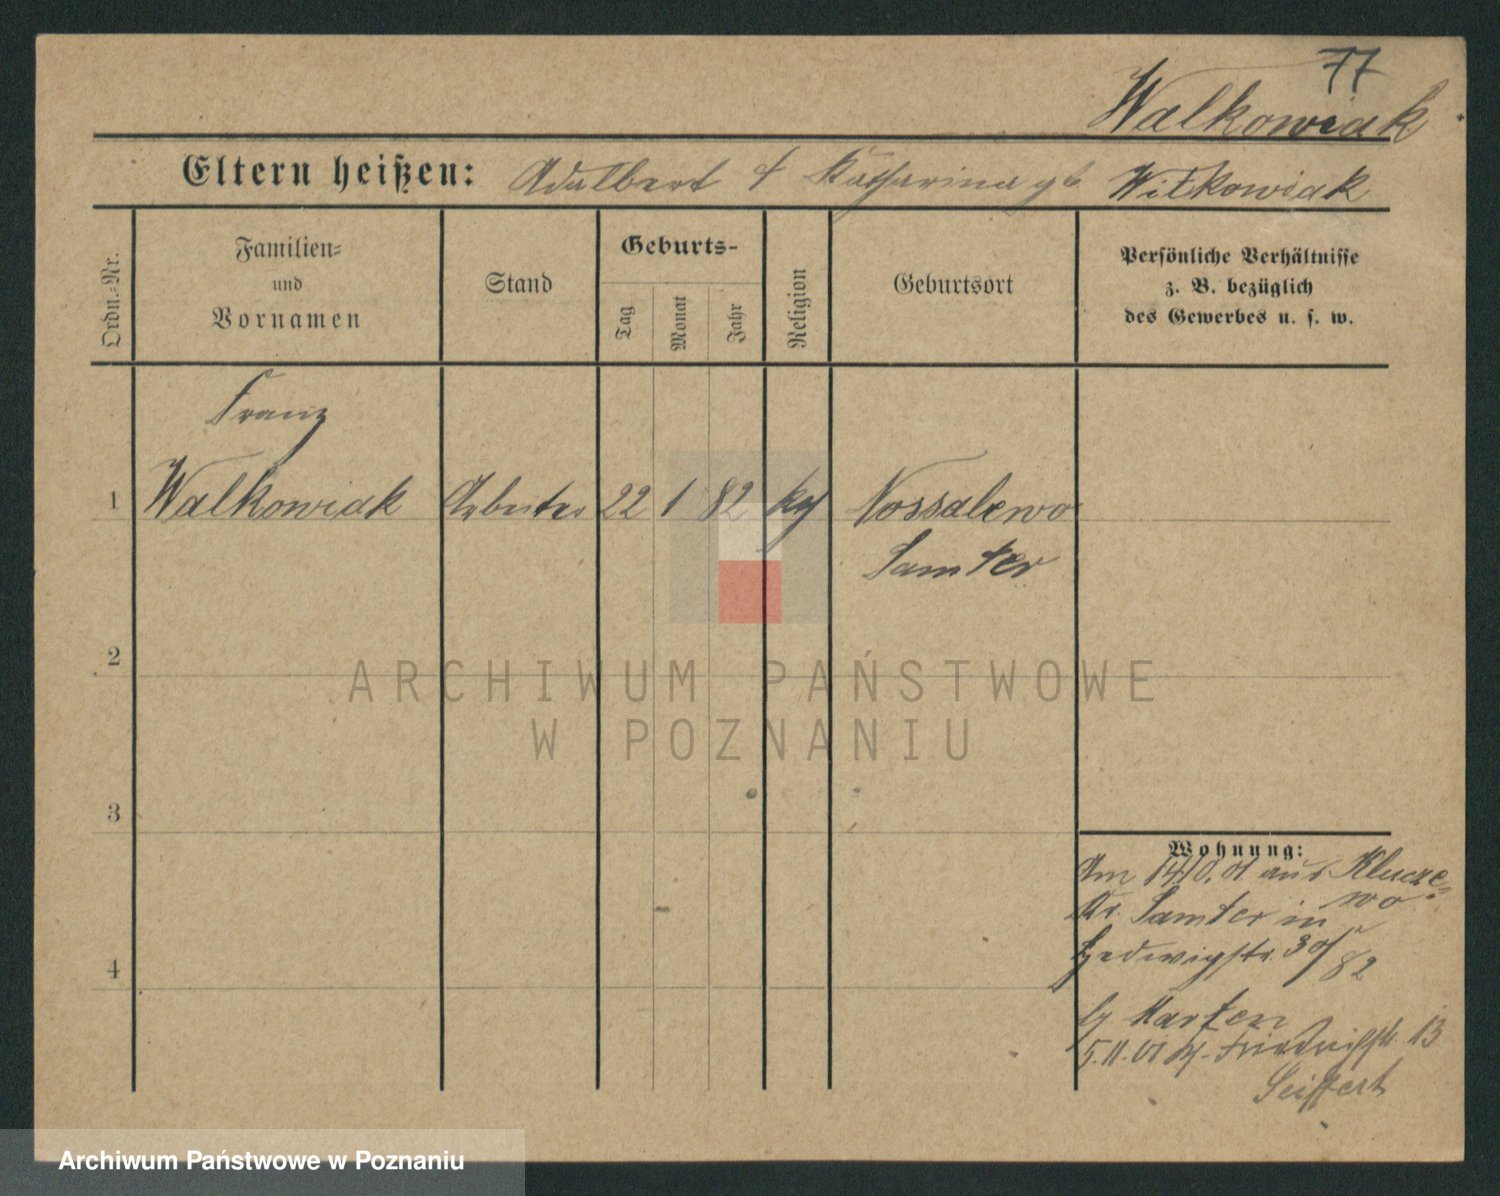 77
Walkowiak
Eltern heißen: Adalbert & Katharina gb. Witkowiak
Ordn.-Nr.
Familien-
und
Vornamen
Stand
Geburts-
Tag
Monat
Jahr
Religion
Geburtsort
Persönliche Verhältnisse
z. B. bezüglich
des Gewerbes u. s. w.
Franz
1 Walkowiak Arbeiter 22 1 82 Nossalewo
Samter
2
ARCHIWUM PAŃSTWOWE
W POZNANIU
3
Wohnung:
Am 14/10. 01 aus Klucze-
wo
Kr. Samter in
Hedwigstr. 30/
82
Marten
5.11.01 Friedrichstr. 13
Seiffert
4
Archiwum Państwowe w Poznaniu